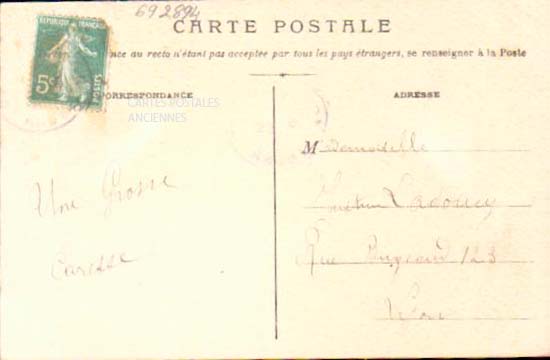 692894
CARTE POSTALE
REPUBLIQUE FRANÇAISE
5c
POSTES
nce au recto n'étant pas acceptée par tous les pays étrangers, se renseigner à la Poste
ORRESPONDANCE
CARTES POSTALES
ANCIENNES
Une Grosse
Caresse
ADRESSE
Mademoiselle
Rue 123